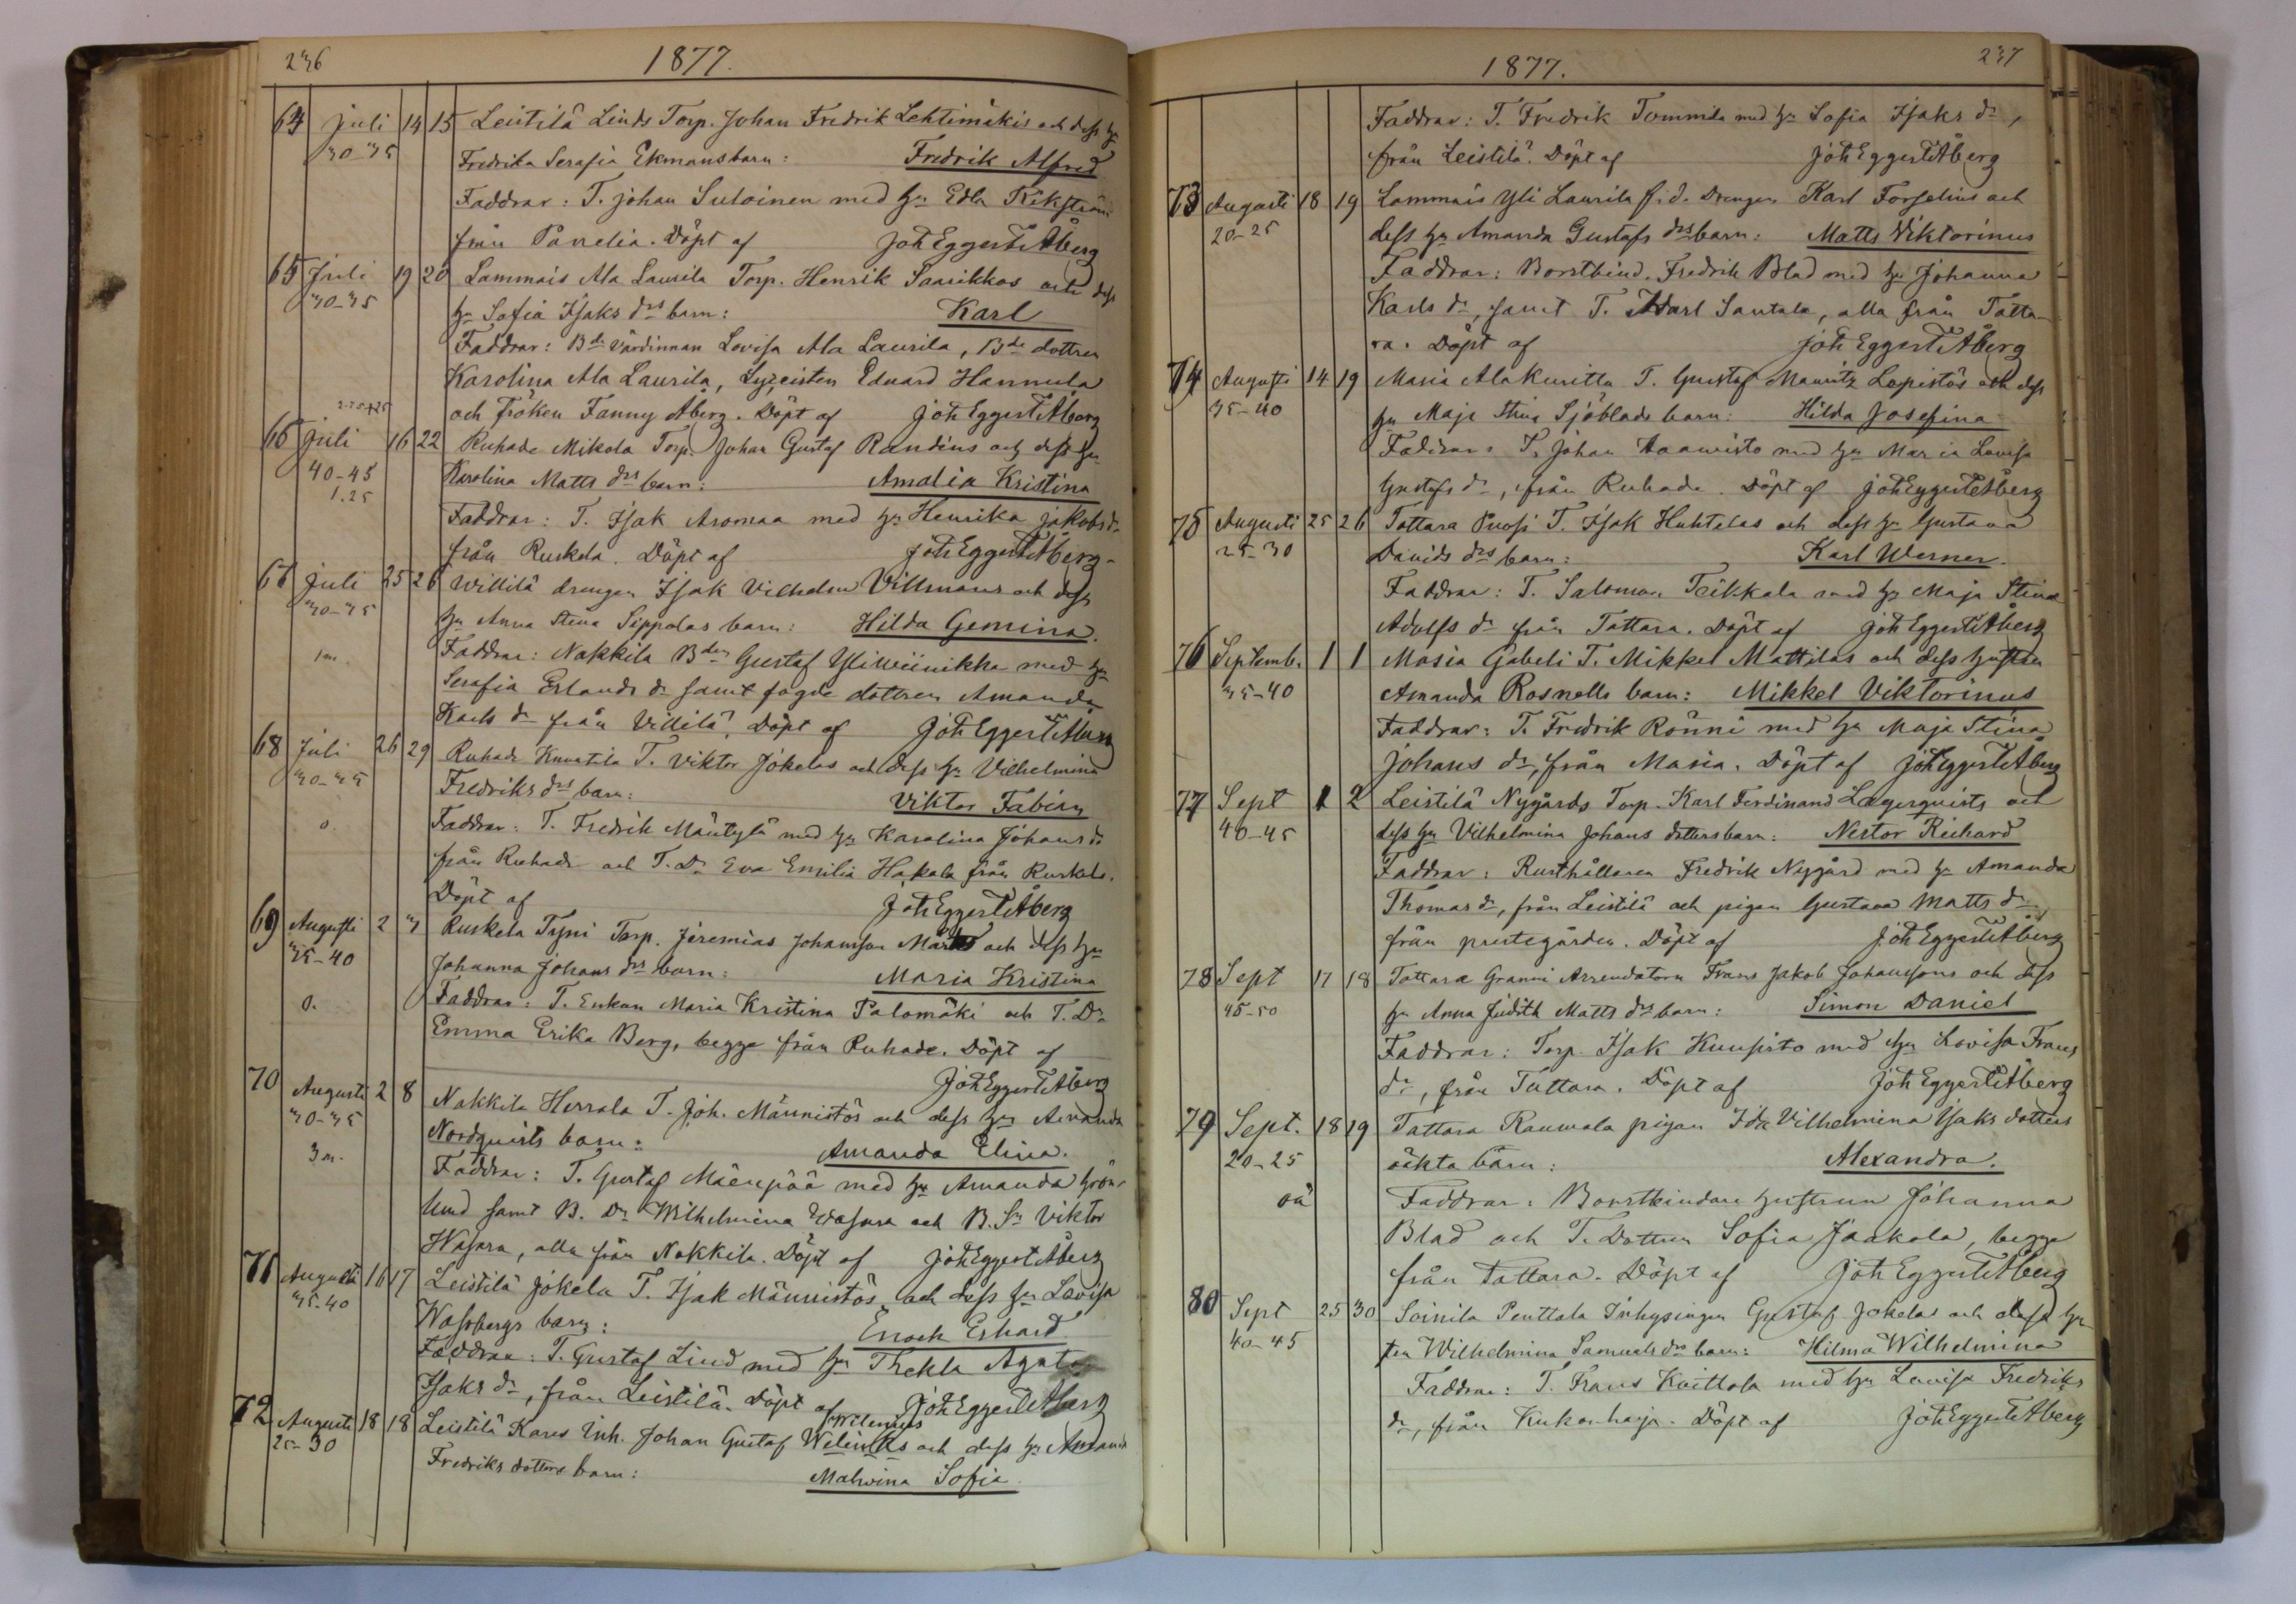 236
1877.
64 Juli 14 15 Leistilä Linds Torp. Johan Fredrik Lehtimäkis och dess hu
30-35 Fredrika Serafia Ekmans barn: Fredrik Alfred
Faddrar: T. Johan Suloinen med hu Edla
från Pånelia. Döpt af Joh Eggert Åberg
65 Juli 19 20 Lammais Ala Laurila Torp. Henrik Saarikkos och dess
30-35 hu Sofia Isaks drs barn: Karl
Faddrar: Bde Värdinnan Lovisa Ala Laurila, Bde dottren
Karolina Ala Laurila, Lyzeisten Eduard Hannula
och fröken Fanny Åberg. Döpt af Joh Eggert Åberg
66 Juli 16 22 Ruhade Mikola Torp. Johan Gustaf Randins och dess hu
40-45 Karolina Matts drs barn: Amalia Kristina
1.25
Faddrar: T. Isak Aromaa med hu Henrika Jakobs dr
från Ruskela. Döpt af Joh Eggert Åberg
67 Juli 25 26 Willilä drengen Isak Vilhelm Villmans och dess
30-35 hu Anna Stina Sippolas barn: Hilda Gemina.
Faddrar: Nakkila Bden Gustaf Yliwiinikka med hu
Serafia Erlands dr samt fogde dottren Amanda
Karls dr från Villilä. Döpt af Joh Eggert Åberg
68 Juli 26 29 Ruhade Knuutila T. Viktor Jokelas och dess hu Vilhelmina
Fredriks drs barn: Viktor Fabian
0. Faddrar: T. Fredrik Mäntylä med hu Karolina Johans dr
från Ruhade och T. Dr Eva Emilia Hakala från Ruskela.
Döpt af Joh Eggert Åberg
69 Augusti 2 3 Ruskela Tyni Torp. Jeremias Johansson och dess hu
35-40 Johanna Johans drs barn: Maria Kristina
0. Faddrar: T. Enkan Maria Kristina Palomäki och T. Dr
Emma Erika Berg, begge från Ruhade. Döpt af
Joh Eggert Åberg
70 Augusti 2 8 Nakkila Herrala T. Joh. Männistös och dess hu Amanda
30-35 Nordquists barn: Amanda Elina.
3 m. Faddrar: T. Gustaf Mäenpää med hu Amanda Grön-
lund samt B. Dr Wilhelmina Wasara och B. Sn Viktor
Wasara, alla från Nakkila. Döpt af Joh Eggert Åberg
71 Augusti 16 17 Leistilä Jokela T. Isak Männistös och dess hu Lovisa
35-40 Wassbergs barn: Enoch Erhard
Faddrar: T. Gustaf Lind med hu Thekla Agata
Isaks dr, från Leistilä. Döpt af Joh Eggert Åberg
72 Augusti 18 18 Leistilä Kares Inh. Johan Gustaf och dess hu Amanda
25-30 Fredriks dotters barn: Malwina Sofia
237
1877.
Faddrar: T. Fredrik Tommila med hu Sofia Isaks dr,
från Leistilä. Döpt af Joh Eggert Åberg
73 Augusti 18 19 Lammais Yli Laurila f.d. Drengen Karl Forselius och
20-25 dess hu Amanda Gustafs drs barn: Matts Viktorinus
Faddrar: Borstbind. Fredrik Blad med hu Johanna
Karls dr, samt T. Karl Santala, alla från Tatta-
ra. Döpt af Joh Eggert Åberg
74 Augusti 14 19 Masia Alakuritta T. Gustaf Mauritz Lepistös och dess
35-40 hu Maja Stina Sjöblads barn: Hilda Josefina
Faddrar: T. Johan Haawisto med hu Maria Lovisa
Gustafs dr, från Ruhade. Döpt af Joh Eggert Åberg
75 Augusti 25 26 Tattara Puosi T. Isak Huhtalas och dess hu Gustava
25-30 Davids drs barn: Karl Werner.
Faddrar: T. Salomon Teikkala med hu Maja Stina
Adolfs dr från Tattara. Döpt af Joh Eggert Åberg
76 Septemb. 1 1 Masia Gabeli T. Mikkel Mattilas och dess hustru
35-40 Amanda Rosnells barn: Mikkel Viktorinus
Faddrar: T. Fredrik Rönni med hu Maja Stina
Johans dr, från Masia. Döpt af Joh Eggert Åberg
77 Sept 1 2 Leistilä Nygårds Torp. Karl Ferdinand Lagerquists och
40-45 dess hu Vilhelmina Johans dotters barn: Nestor Richard
Faddrar: Rusthållaren Fredrik Nygård med hu Amanda
Thomas dr, från Leistilä och pigan Gustava Matts dr,
från prestegården. Döpt af Joh Eggert Åberg
78 Sept 17 18 Tattara Granni Arrendatorn Frans Jakob Johanssons och dess
45-50 hu Anna Judith Matts drs barn: Simon Daniel
Faddrar: Torp. Isak Kuusisto med hu Lovisa Frans
dr, från Tattara. Döpt af Joh Eggert Åberg
79 Sept. 18 19 Tattara Rauwala pigan Ida Vilhelmina Isaks dotters
20-25 oäkta barn: Alexandra.
oä Faddrar: Borstbindare hustrun Johanna
Blad och T. Dottren Sofia Jaakola, begge
från Tattara. Döpt af Joh Eggert Åberg
80 Sept 25 30 Soinila Penttala Inhysingen Gustaf Jokelas och dess hu
40-45 Wilhelmina Samuels drs barn: Hilma Wilhelmina
Faddrar: T. Frans Koittola med hu Lovisa Fredriks
dr, från Kukonharja. Döpt af Joh Eggert Åberg